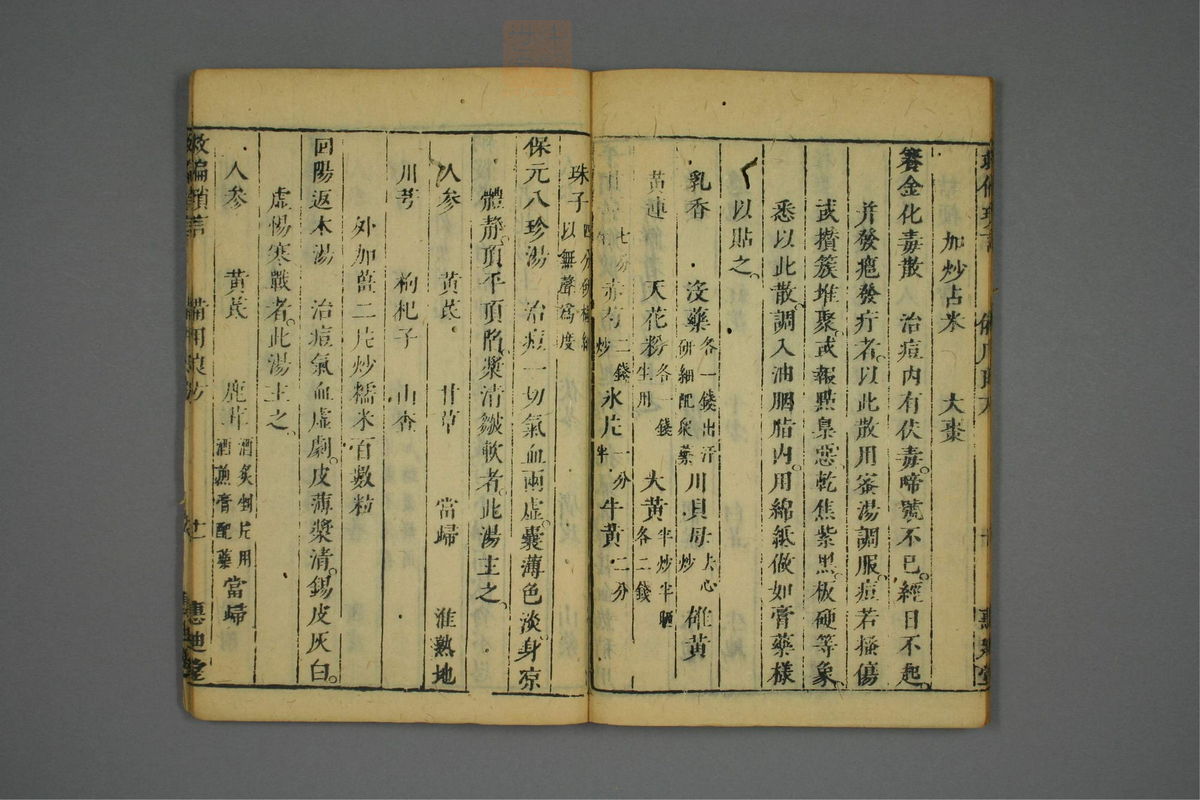 加炒占米 大棗
養金化毒散 治痘内有伏毒啼號不已經日不起
并發疱發疔者以此散用蜜湯調服痘若搔傷
或攢簇堆聚或報點臬惡乾焦紫黑板硬等象
悉以此散調入油胭脂内用綿紙做如膏藥樣
以貼之
乳香 没藥各一錢出汗研細配衆藥 川貝母去心炒 雄黃
黃連七分 天花粉各一錢生用 大黃半炒半晒各二錢
赤芍二錢炒 氷片一分半 牛黃二分
珠子以無聲爲度
保元八珍湯 治痘一切氣血兩虛囊薄色淡身凉
體靜頂平頂陷漿清皺軟者此湯主之
人参 黃芪 甘草 當歸 淮熟地
川芎 枸杞子 山査
外加薑二片炒糯米百數粒
回陽返本湯 治痘氣血虛劇皮薄漿清錫皮灰白
虛惕寒戰者此湯主之
人参 黃芪 鹿茸酒炙切片用酒煎膏配藥 當歸
救偏瑣言 備用良方 惠迪堂